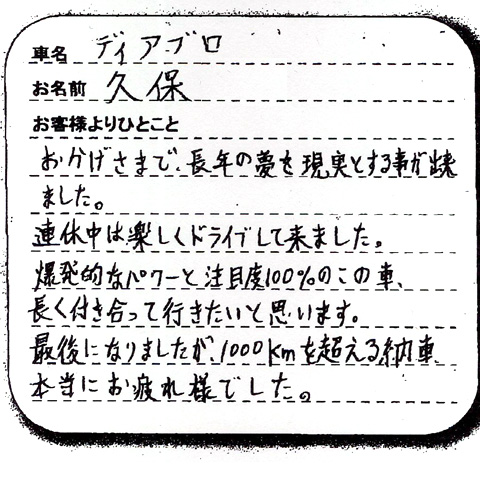 車名 ディアブロ
お名前 久保
お客様よりひとこと
おかげさまで、長年の夢を現実とする事が出来
ました。
連休中は楽しくドライブして来ました。
爆発的なパワーと注目度100%のこの車、
長く付き合って行きたいと思います。
最後になりましたが、1000kmを超える納車、
本当にお疲れ様でした。